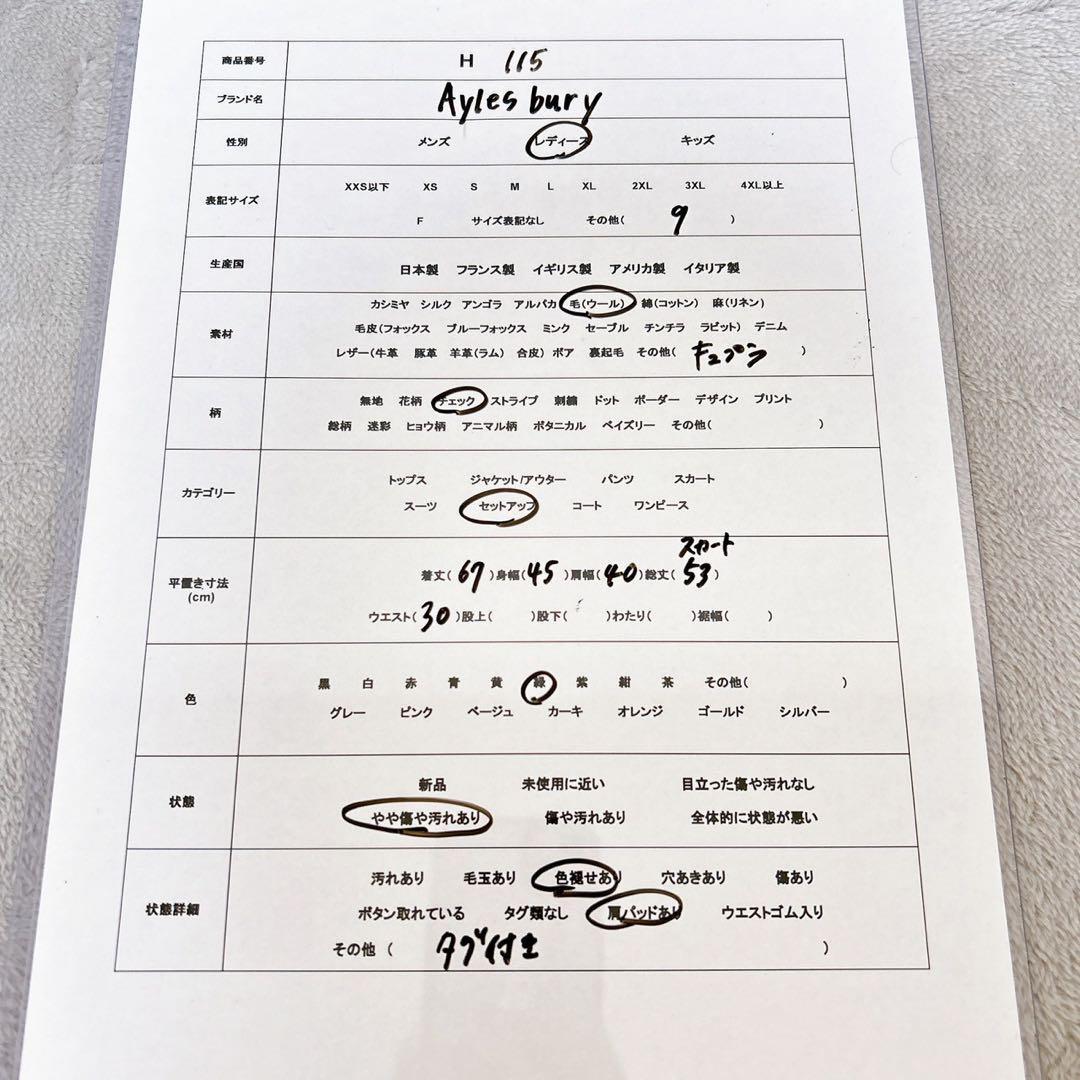 商品番号 H 115
ブランド名 Aylesbury
性別 メンズ レディース キッズ
XXS以下 XS S M L XL 2XL 3XL 4XL以上
表記サイズ
F サイズ表記なし その他( 9 )
生産国 日本製 フランス製 イギリス製 アメリカ製 イタリア製
カシミヤ シルク アンゴラ アルパカ 毛(ウール) 綿(コットン) 麻(リネン)
素材 毛皮(フォックス ブルーフォックス ミンク セーブル チンチラ ラビット) デニム
レザー(牛革 豚革 羊革(ラム) 合皮) ボア 裏起毛 その他( キュプラ )
柄 無地 花柄 チェック ストライプ 刺繍 ドット ボーダー デザイン プリント
総柄 迷彩 ヒョウ柄 アニマル柄 ボタニカル ペイズリー その他( )
トップス ジャケット/アウター パンツ スカート
カテゴリー
スーツ セットアップ コート ワンピース
スカート
平置き寸法 着丈( 67 )身幅( 45 )肩幅( 40 )総丈( 53 )
(cm)
ウエスト( 30 )股上( )股下( )わたり( )裾幅( )
黒 白 赤 青 黄 緑 紫 紺 茶 その他( )
色
グレー ピンク ベージュ カーキ オレンジ ゴールド シルバー
新品 未使用に近い 目立った傷や汚れなし
状態
やや傷や汚れあり 傷や汚れあり 全体的に状態が悪い
汚れあり 毛玉あり 色褪せあり 穴あきあり 傷あり
状態詳細 ボタン取れている タグ類なし 肩パッドあり ウエストゴム入り
その他 ( タグ付き )